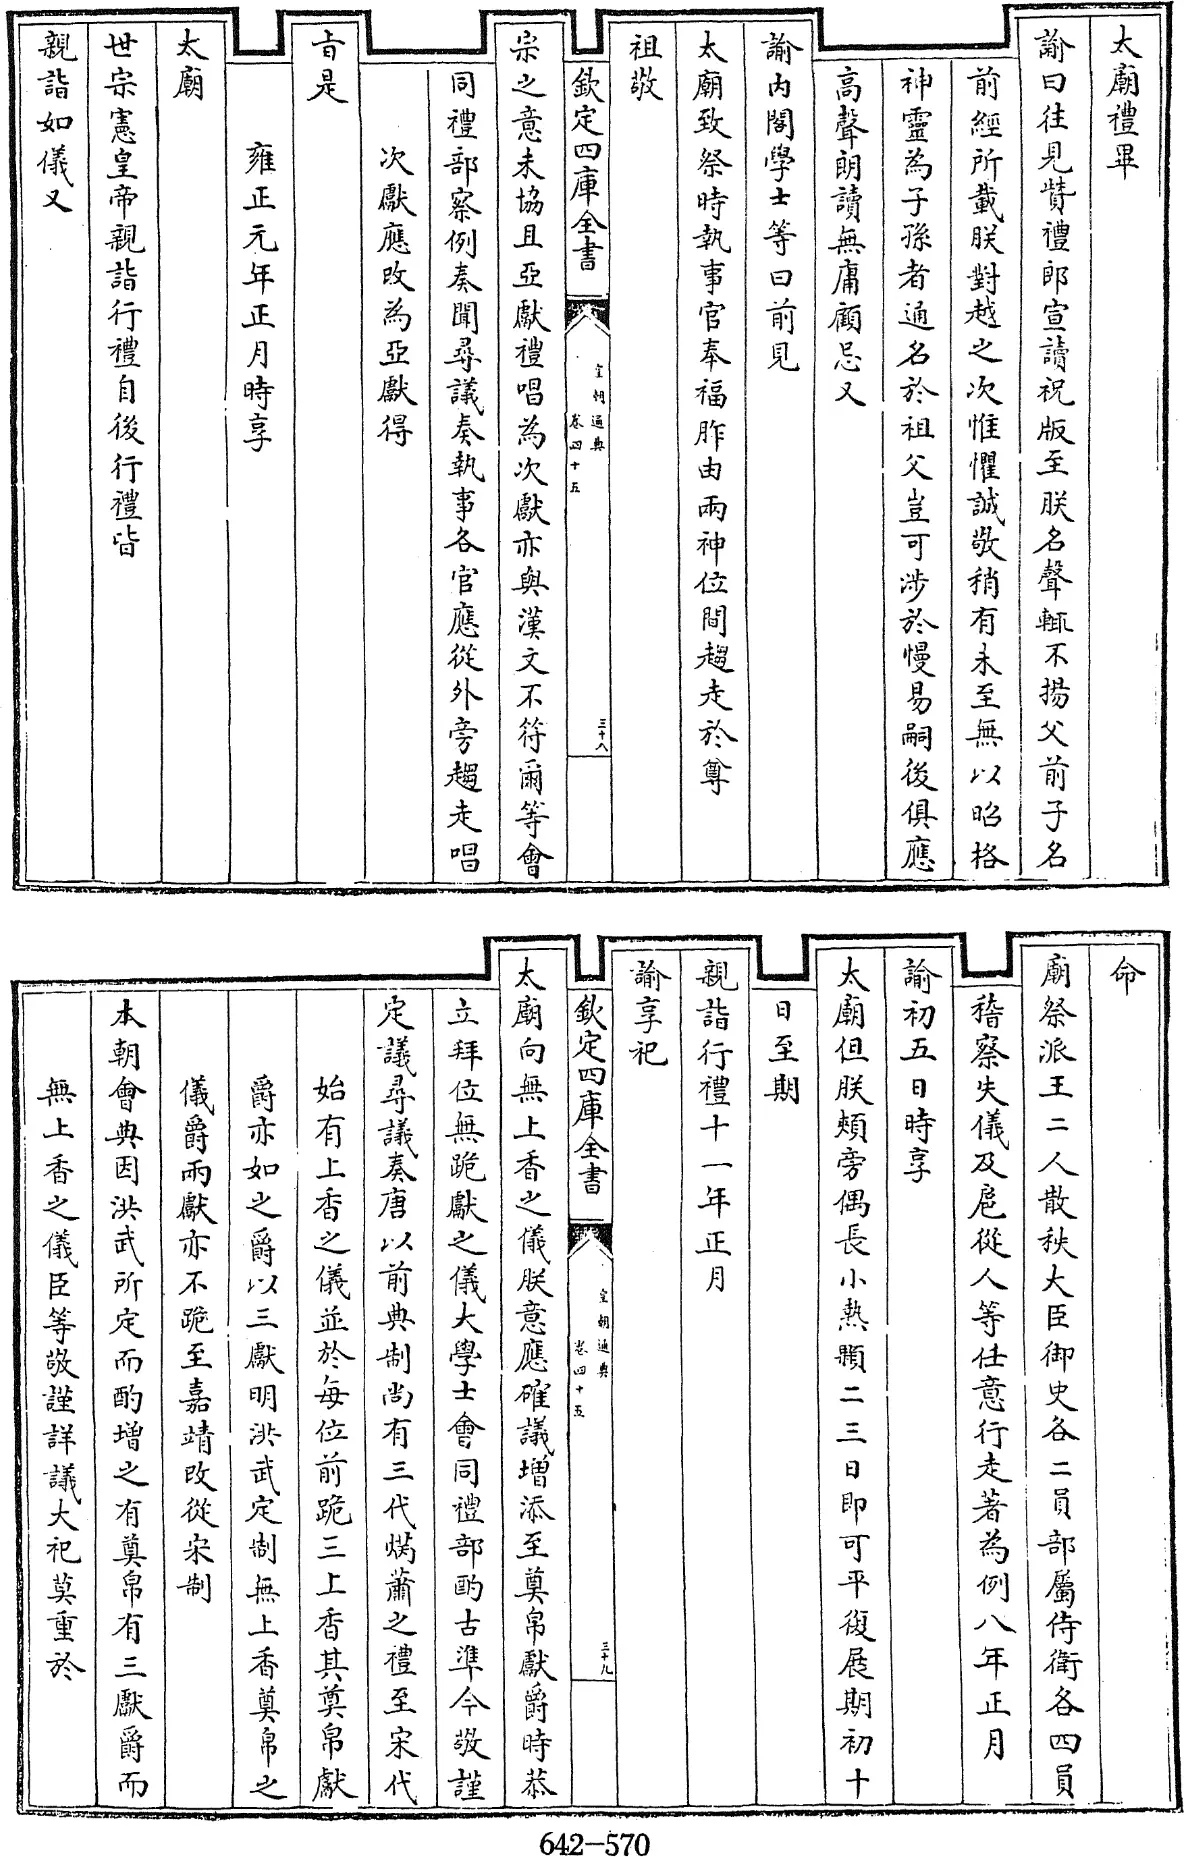 太廟禮畢
諭曰往見贊禮郎宣讀祝版至朕名聲輒不揚父前子名
前經所載朕對越之次惟懼誠敬稍有未至無以昭格
神靈為子孫者通名於祖父豈可涉於慢易嗣後俱應
高聲朗讀無庸顧忌又
諭內閣學士等曰前見
太廟致祭時執事官奉福胙由兩神位間趨走於尊
祖敬
欽定四庫全書
皇朝通典
卷四十五
三十八
宗之意未協且亞獻禮唱為次獻亦與漢文不符爾等會
同禮部察例奏聞尋議奏執事各官應從外旁趨走唱
次獻應改為亞獻得
旨是
雍正元年正月時享
太廟
世宗憲皇帝親詣行禮自後行禮皆
親詣如儀又
命
廟祭派王二人散秩大臣御史各二員部屬侍衛各四員
稽察失儀及扈從人等任意行走著為例八年正月
諭初五日時享
太廟但朕頰旁偶長小熱顆二三日即可平復展期初十
日至期
親詣行禮十一年正月
諭享祀
欽定四庫全書
皇朝通典
卷四十五
三十九
太廟向無上香之儀朕意應確議增添至奠帛獻爵時恭
立拜位無跪獻之儀大學士會同禮部酌古準今敬謹
定議尋議奏唐以前典制尚有三代焫蕭之禮至宋代
始有上香之儀並於每位前跪三上香其奠帛獻
爵亦如之爵以三獻明洪武定制無上香奠帛之
儀爵兩獻亦不跪至嘉靖改從宋制
本朝會典因洪武所定而酌增之有奠帛有三獻爵而
無上香之儀臣等敬謹詳議大祀莫重於
642-570